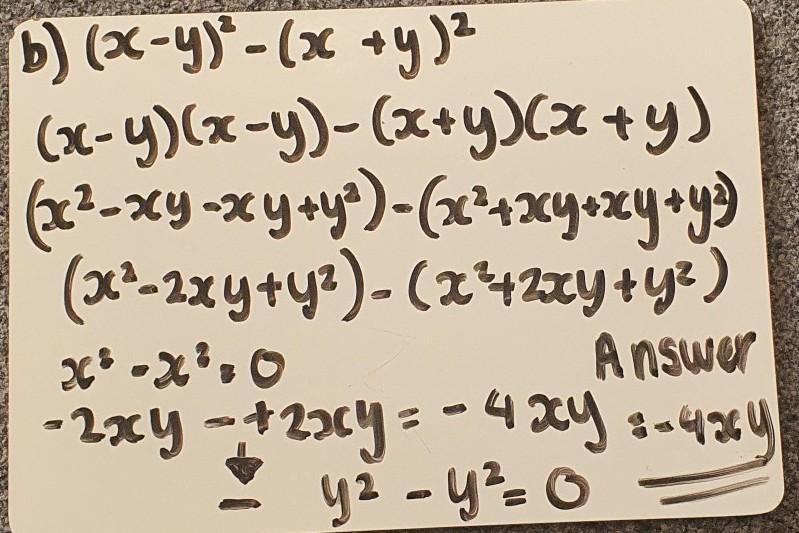 b) (x-y)² - (x+y)²
(x-y)(x-y) - (x+y)(x+y)
(x²-xy-xy+y²)-(x²+xy+xy+y²)
(x²-2xy+y²)-(x²+2xy+y²)
x²-x²=0
Answer
-2xy-+2xy=-4xy
=-4xy
↓
-
y²-y²=0